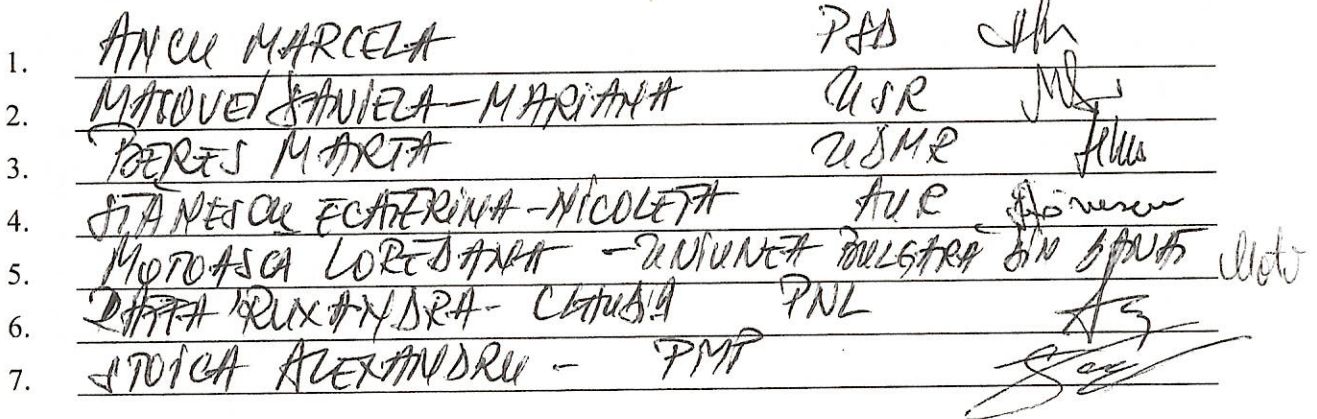 1. ANCU MARCELA PSD
2. DANIELA-MARIANA USR
3. BEREȘ MARTA UDMR
4. STĂNESCU ECATERINA-NICOLETA AUR
5. MOTOASCA LOREDANA - UNIUNEA BULGARA DIN BANAT
6. RUXANDRA- CLAUDIA PNL
7. STOICA ALEXANDRU - PMP